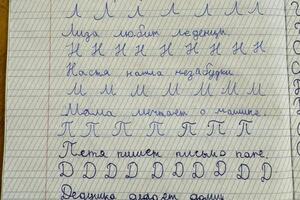 Л Л Л Л Л Л Л
Лиза любит леденцы.
Н Н Н Н Н Н Н Н Н
Настя нашла незабудки.
М М М М М М М
Мама мечтает о машине.
П П П П П П П
Петя пишет письмо папе.
Д Д Д Д Д Д Д Д Д
Дедушка